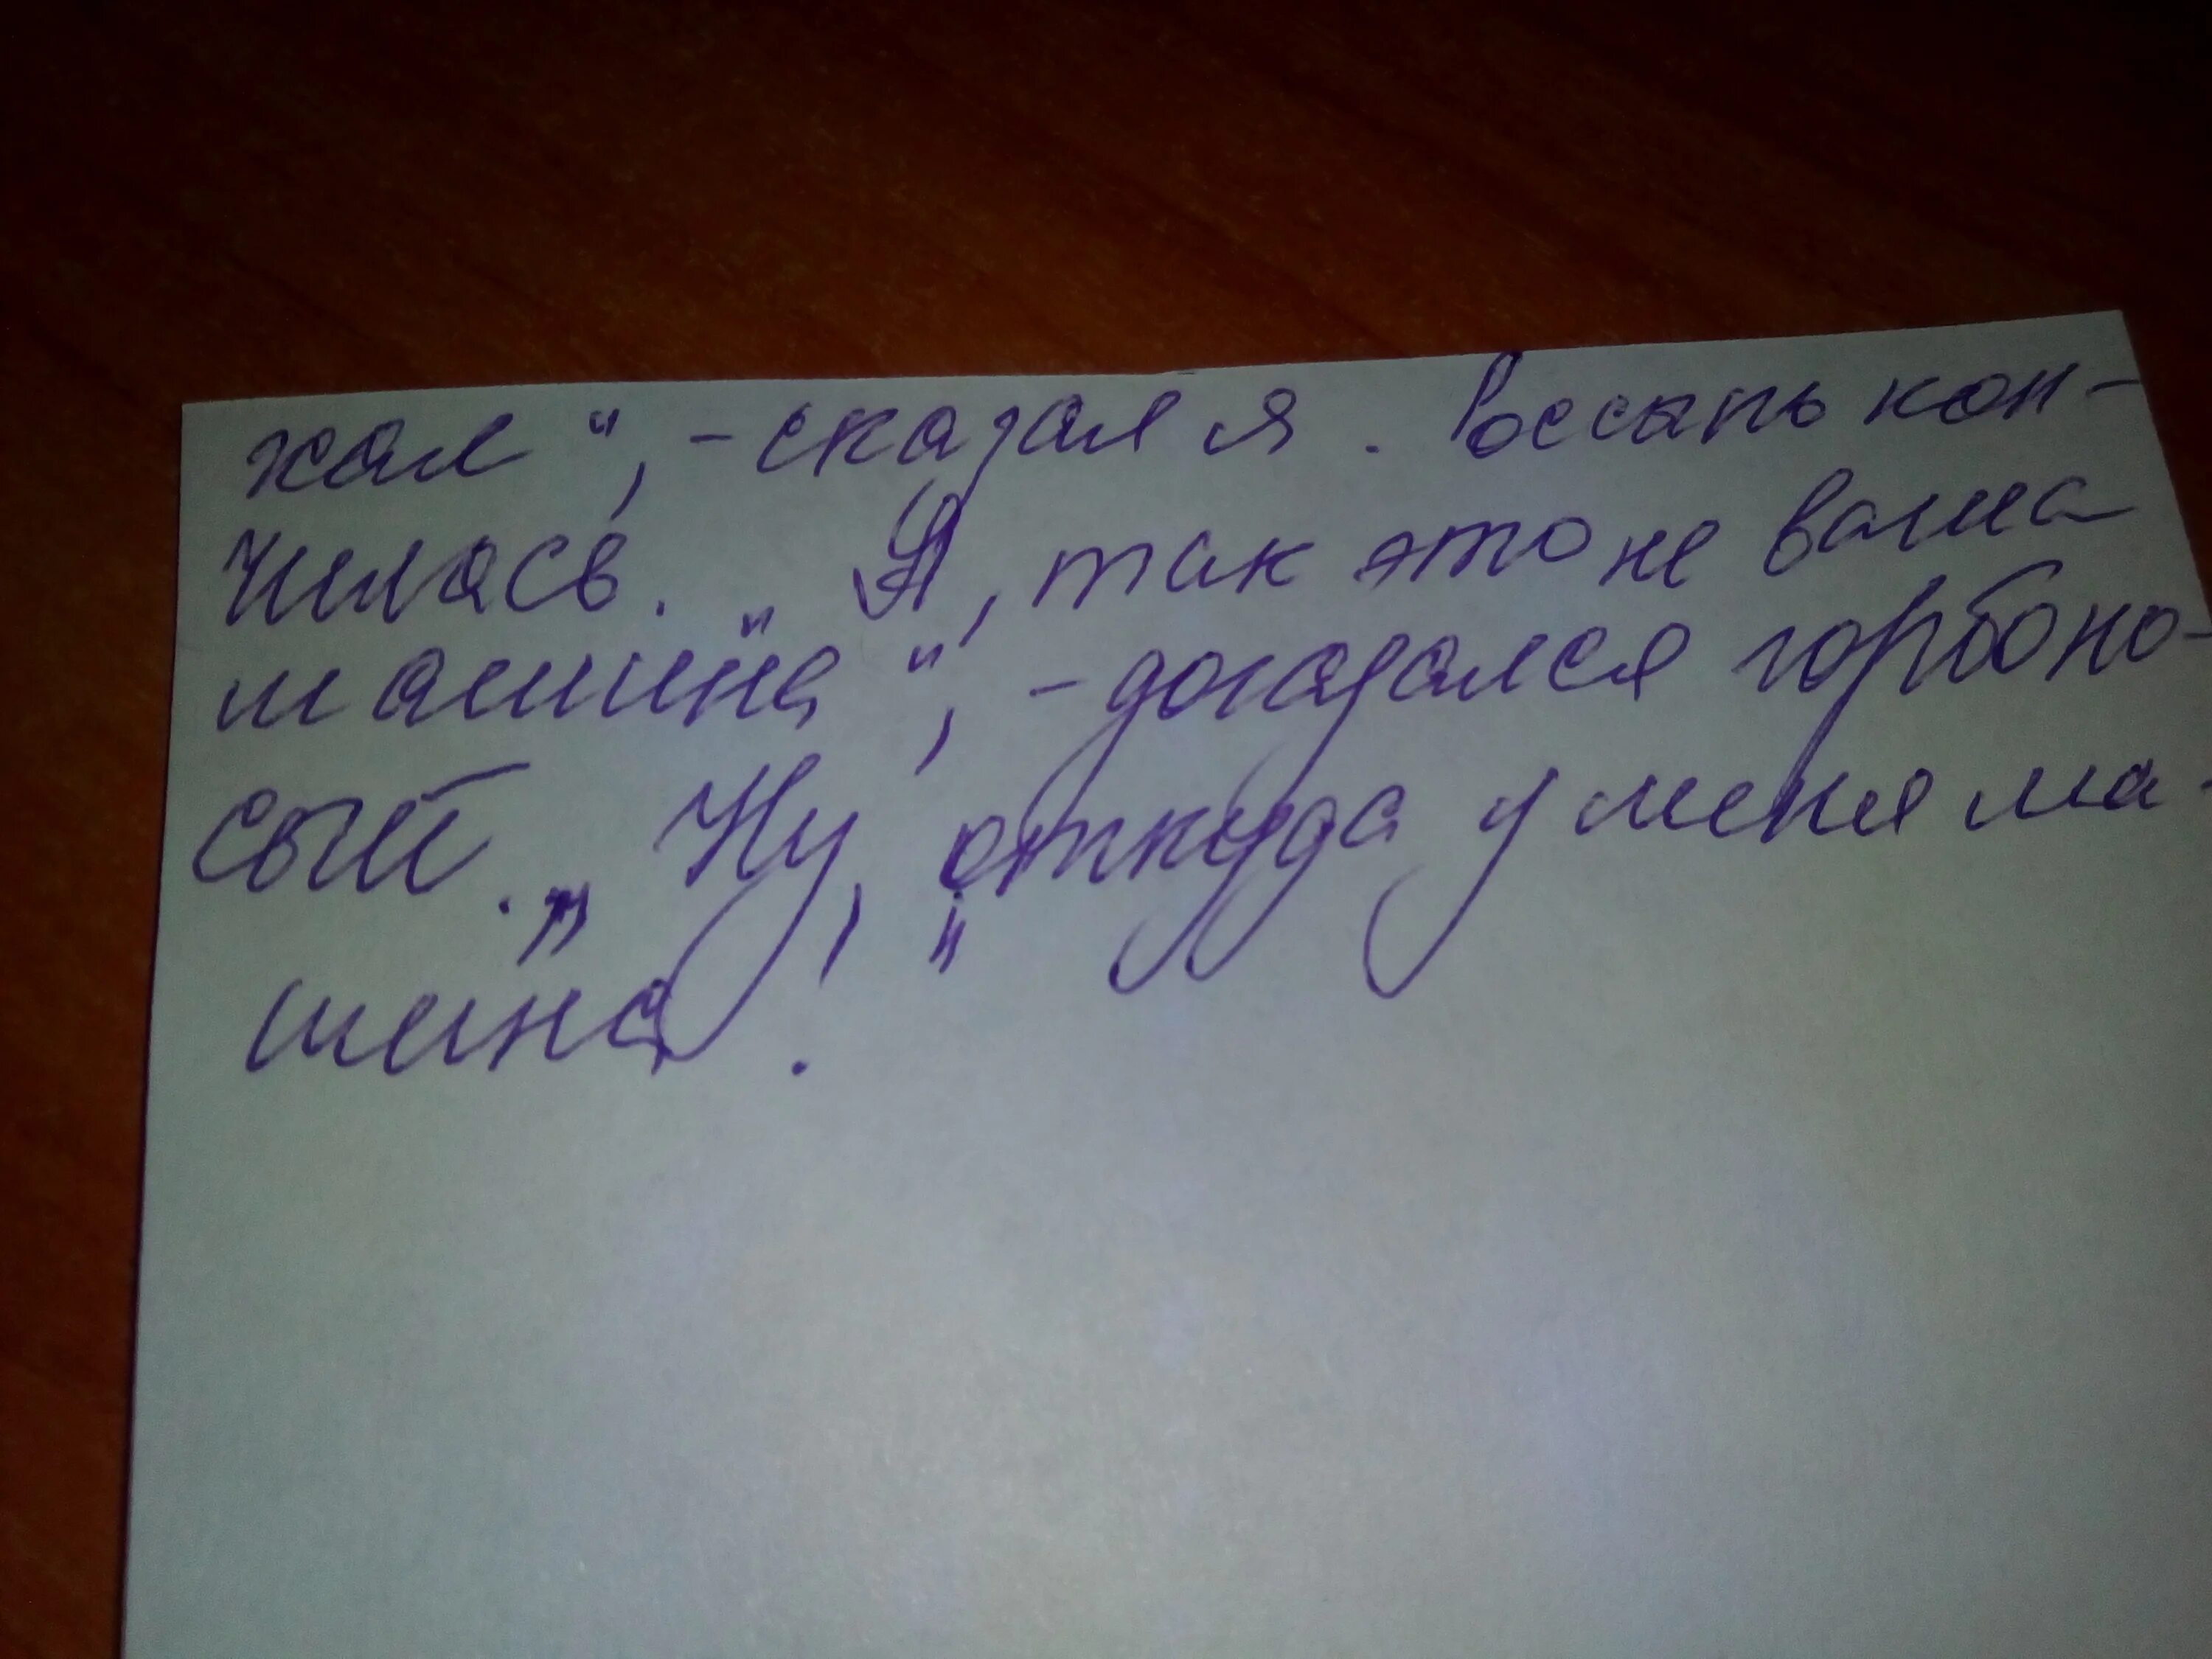 хал", - сказал я. Россыпь кон-
чилась. „А, так это не ваша
машина", - догадался горбоно-
сый. „Ну, „откуда у меня ма-
шина.